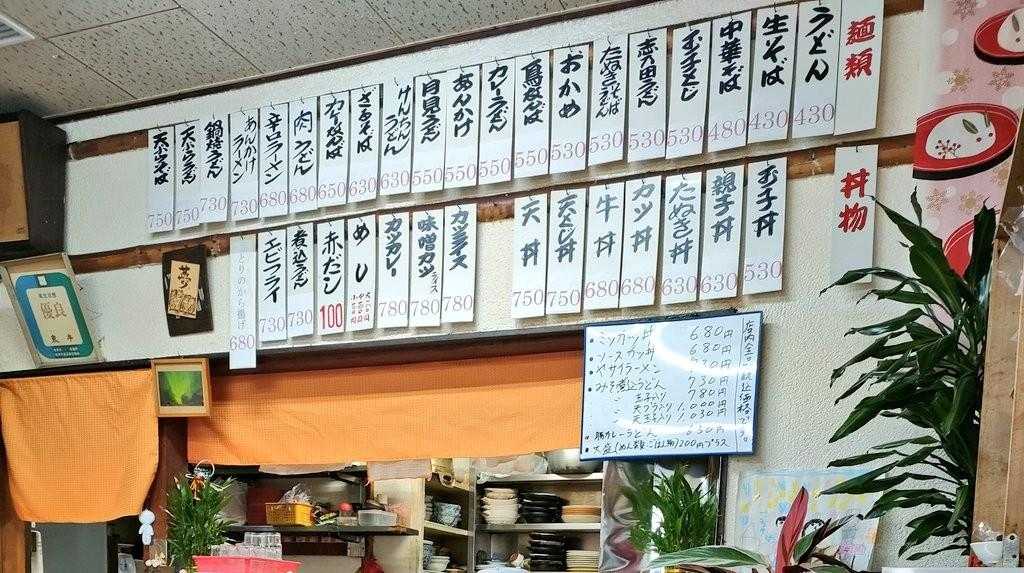 麺類
うどん 430
生そば 430
中華そば 480
むし玉子とじ 530
赤川うどん 530
たぬきそばうどん 530
おかめ 530
鳥なんば 550
カレーうどん 550
あんかけ 550
月見うどん 550
けんちんうどん 630
ざるそば 630
カレーなんば 650
肉うどん 680
辛口ラーメン 680
あんかけラーメン 730
鍋焼うどん 730
天ぷらうどん 750
天ぷらそば 750
丼物
玉子丼 530
親子丼 630
たぬき丼 630
カツ丼 680
牛丼 680
天とじ丼 750
天丼 750
カツライス 780
味噌カツライス 780
カツカレー 780
めし
赤だし 100
煮込うどん 730
エビフライ 730
とりのから揚げ 680
夢
優良
店内全品税込価格です。
・ミソカツ丼 680円
・ソースカツ丼 680円
・ヤサイラーメン 730円
・みそ煮込うどん 730円
〃 玉子入り 780円
〃 天プラ入り 1,000円
〃 天玉子入り 1,030円
カレーうどん 630円
・大盛(めん類・ごはん物)200円プラス